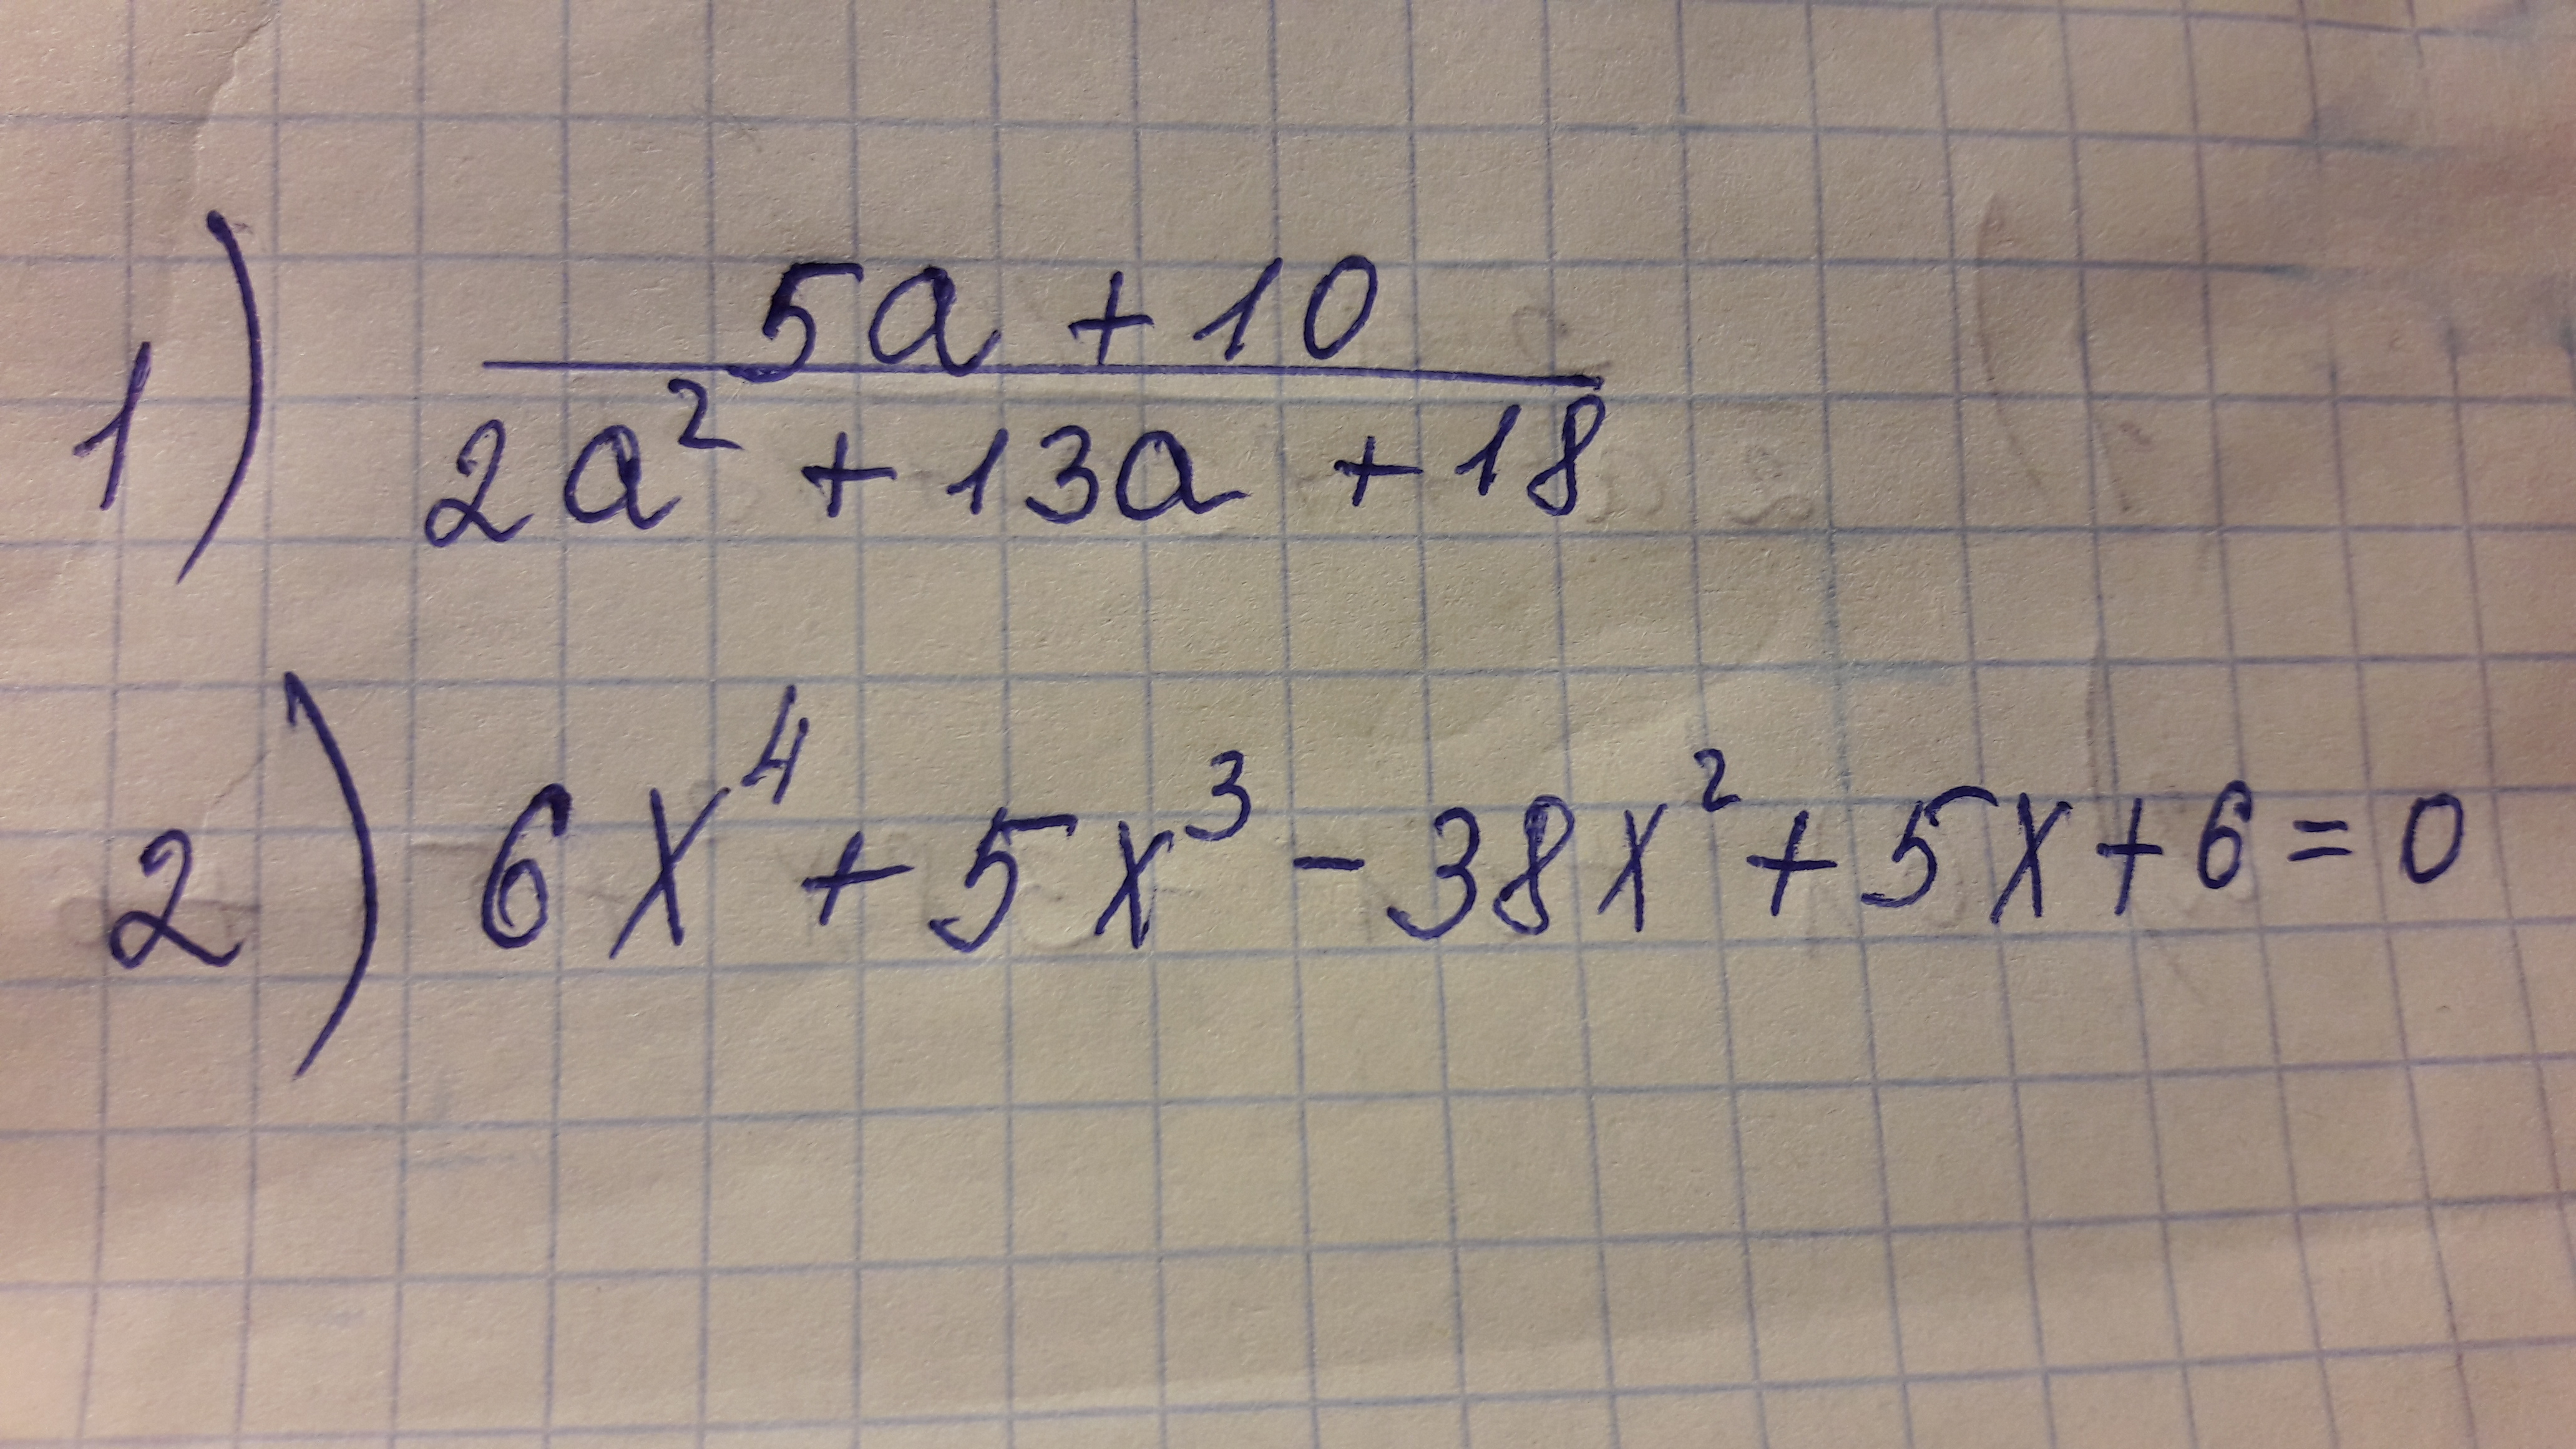 1) 5a + 10
2a² + 13a + 18
2) 6x⁴ + 5x³ - 38x² + 5x + 6 = 0